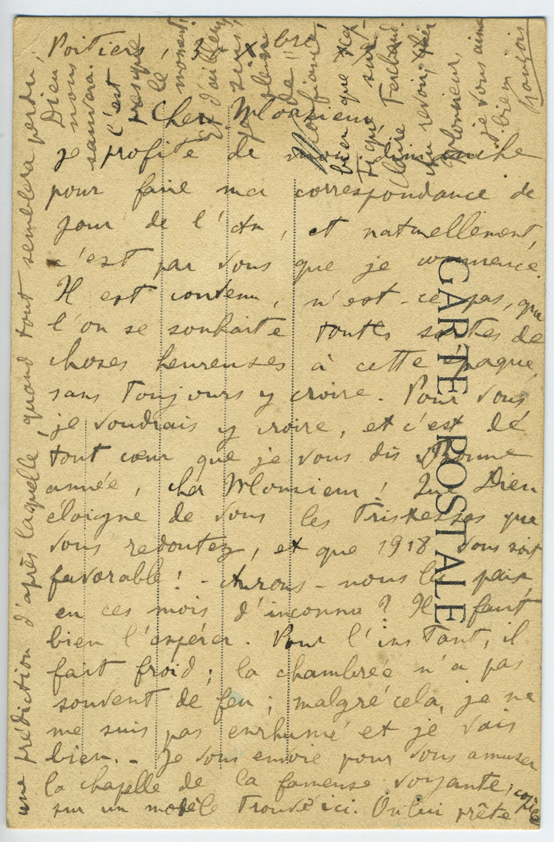 Poitiers,
Cher Monsieur
je profite de mon dimanche
pour faire ma correspondance de
jour de l'An, et naturellement,
c'est par vous que je commence.
Il est convenu, n'est-ce pas, que
l'on se souhaite toutes sortes de
choses heureuses à cette époque,
sans toujours y croire. Pour vous
je voudrais y croire, et c'est de
tout cœur que je vous dis Bonne
année, cher Monsieur! Que Dieu
éloigne de vous les tristesses que
vous redoutez, et que 1918 vous soit
favorable! - Aurons-nous la paix
en ces mois d'inconnu? Il faut
bien l'espérer. Pour l'instant, il
fait froid; la chambrée n'a pas
souvent de feu; malgré cela, je ne
me suis pas enrhumé et je vais
bien. - Je vous envoie pour vous amuser
la chapelle de la fameuse voyante, copiée
sur un modèle trouvé ici. On lui prête
une prédiction d'après laquelle, quand tout semblera perdu,
Dieu
nous
sauvera.
c'est
presque
le
moment
confiance
bien que
sur
Claire Ferchaud.
Au revoir, cher
Monsieur,
je vous aime
bien
François
CARTE POSTALE